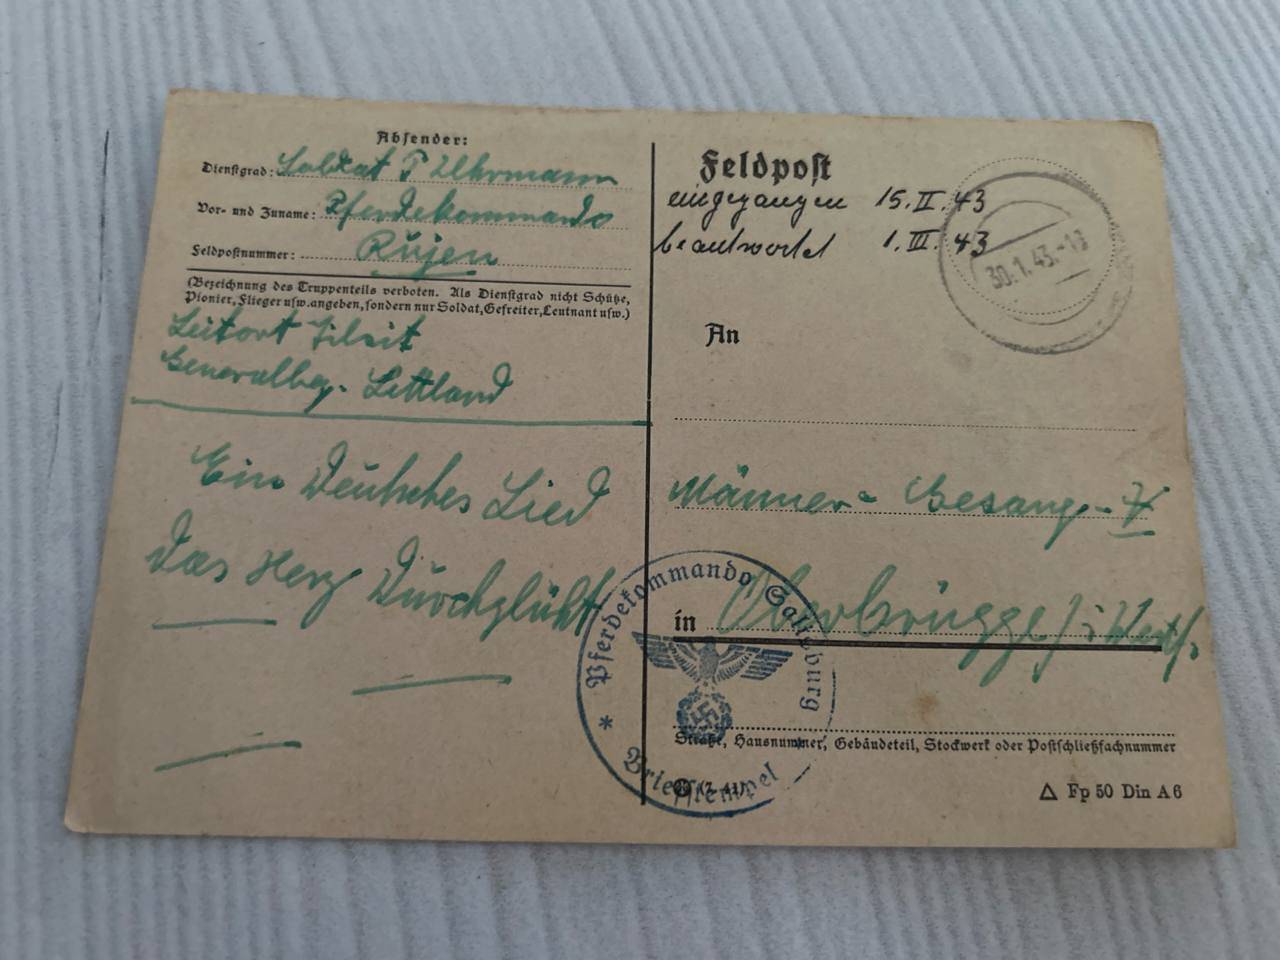 Absender:
Dienstgrad: Soldat P Uhrmann
Vor- und Zuname: Pferdekommando
Feldpostnummer: Rujen
(Bezeichnung des Truppenteils verboten. Als Dienstgrad nicht Schütze,
Pionier, Flieger usw. angeben, sondern nur Soldat, Gefreiter, Leutnant usw.)
Leitort Tilsit
Generalbez. Lettland
Ein Deutsches Lied
Das Herz Durchglüht
Feldpost
eingegangen 15.II.43
beantwortet 1.III.43
30.1.43.-13
An
Männer-Gesang-V
in Oberbrügge/i Westf.
Straße, Hausnummer, Gebäudeteil, Stockwerk oder Postschließfachnummer
Fp 50 Din A6
Pferdekommando Salisburg
* Briefstempel